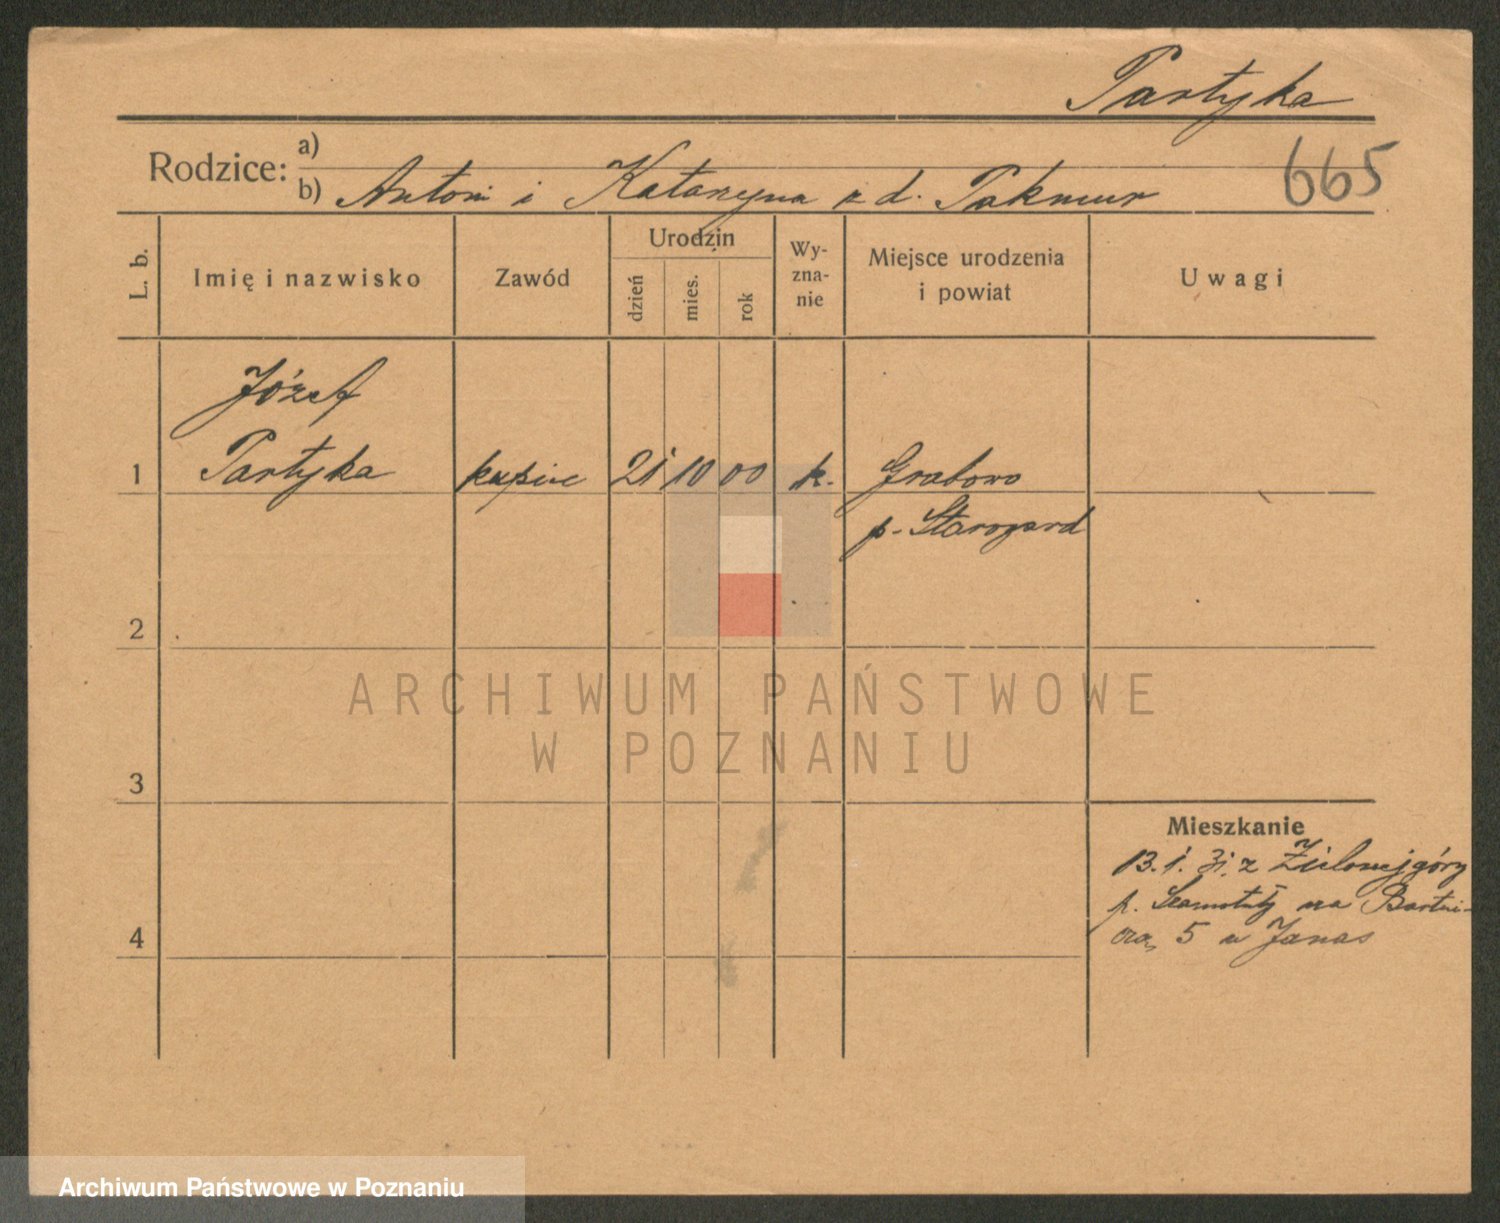 Partyka
Rodzice: a)
b) Antoni i Katarzyna z d. Pakmur
665
L. b.
Imię i nazwisko
Zawód
Urodzin
dzień
mies.
rok
Wy-
zna-
nie
Miejsce urodzenia
i powiat
Uwagi
Józef
1 Partyka kupiec 21 10 00 k. Grabowo
p. Starogard
2
ARCHIWUM PAŃSTWOWE
W POZNANIU
3
Mieszkanie
z Zielonejgóry
p. Szamotuły na Bartni-
czą 5 u Janas
4
Archiwum Państwowe w Poznaniu